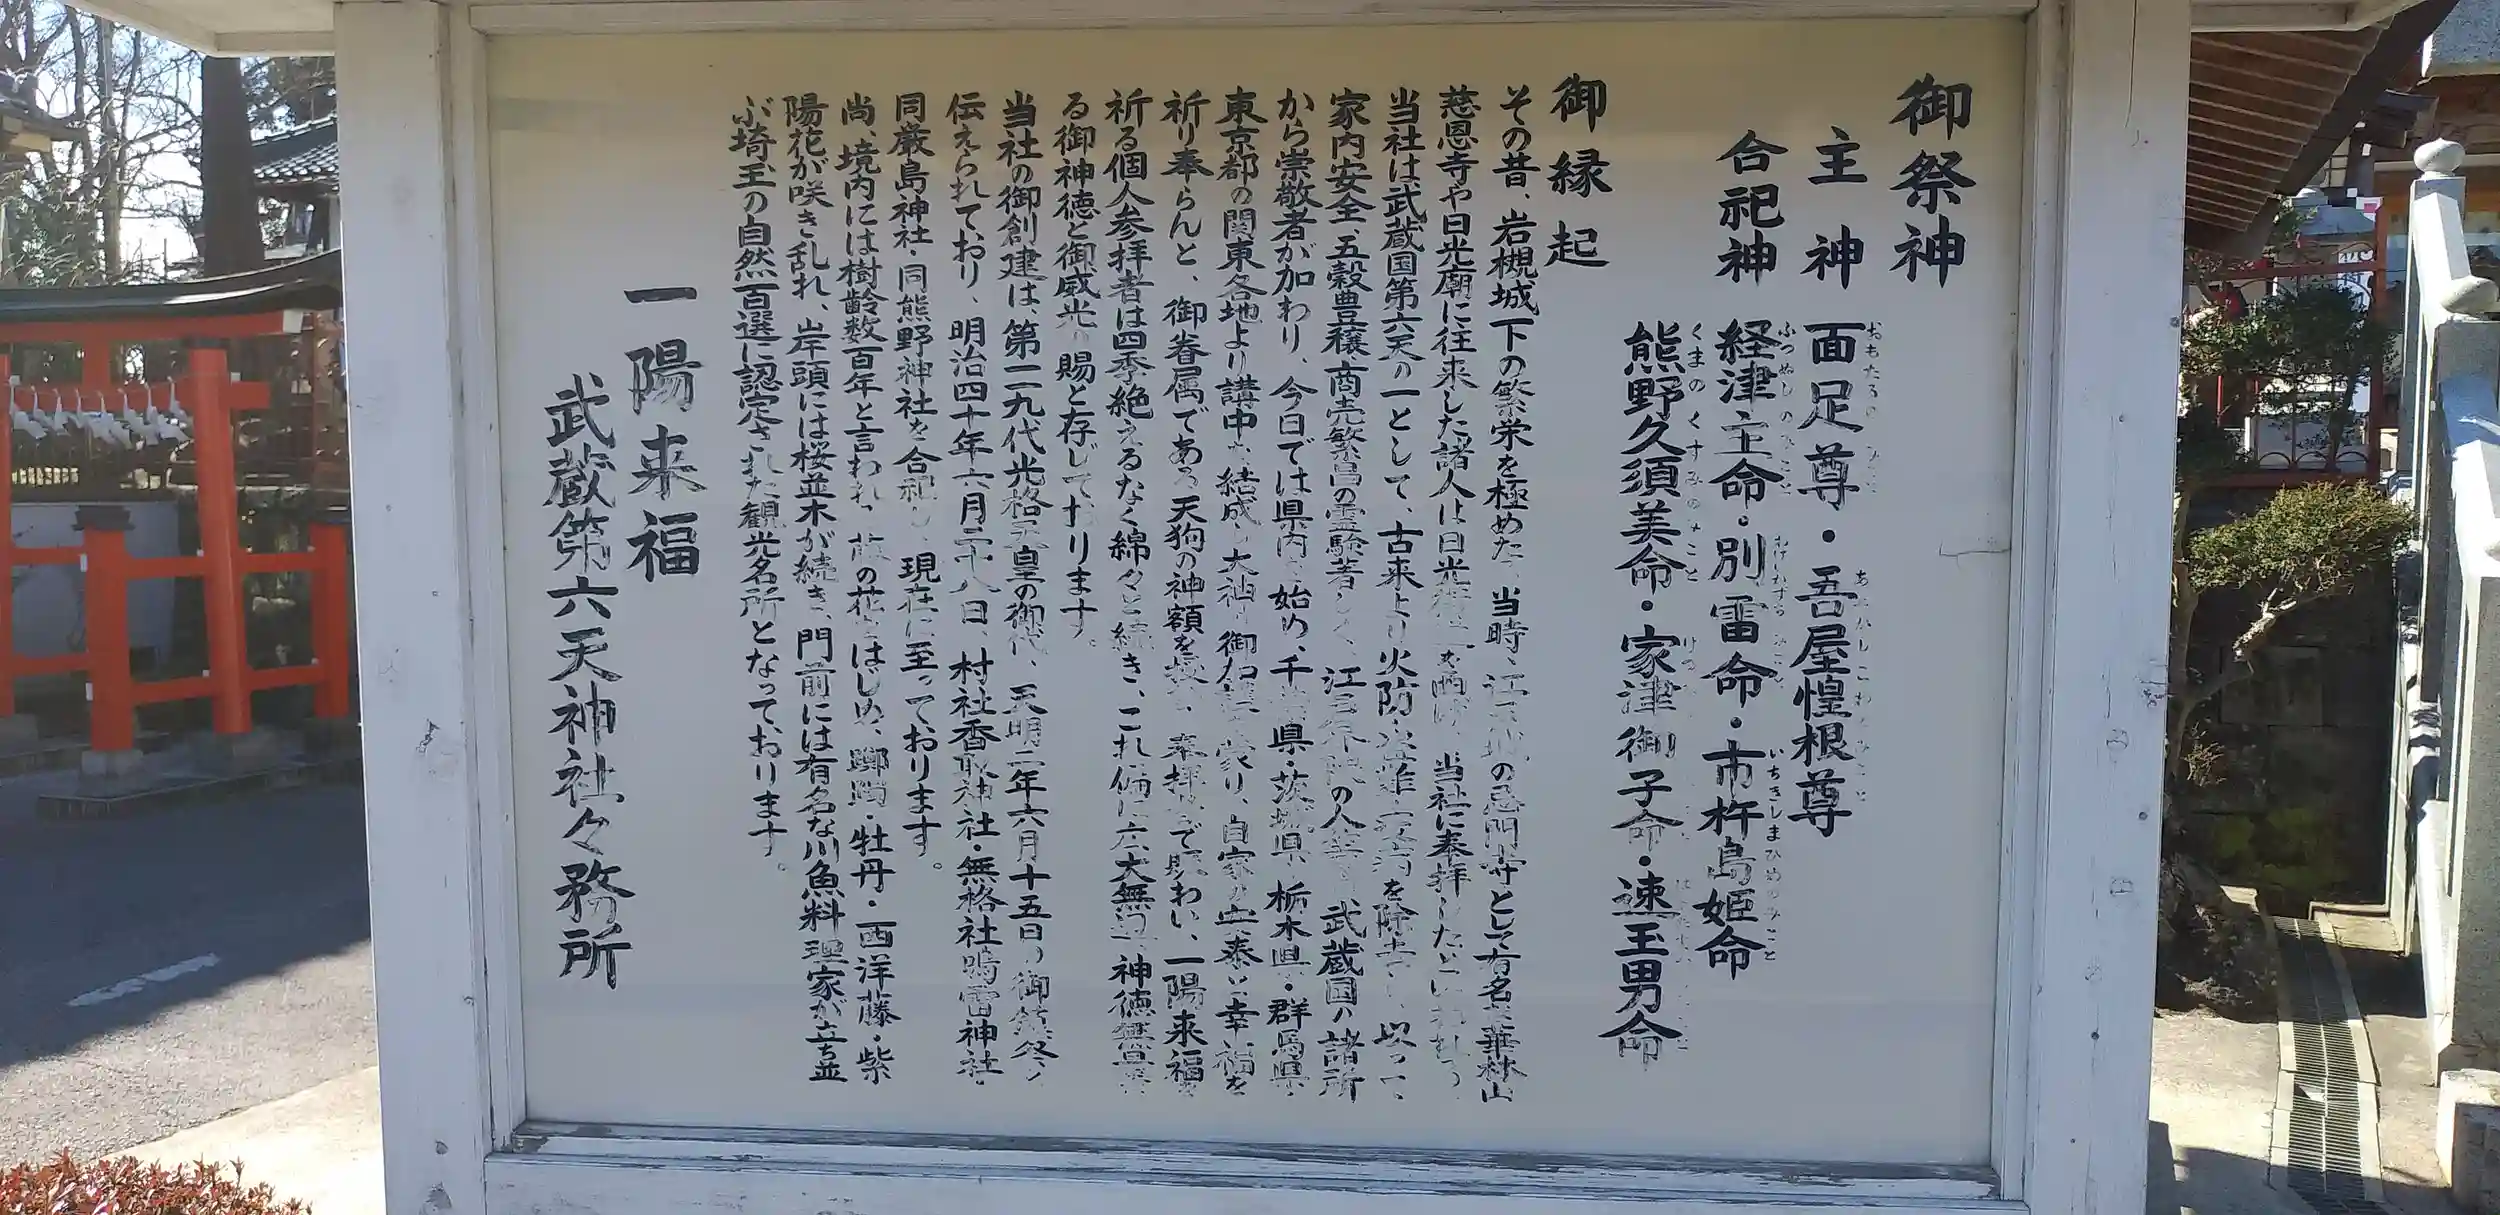 御祭神
主神 面足尊・吾屋惶根尊
おもたるの みこと あやかしこねのみこと
合祀神 経津主命・別雷命・市杵島姫命
ふつぬしのみこと わけいかずちのみこと いちきしまひめのみこと
熊野久須美命・家津御子命・速玉男命
くまのくすみのみこと
御縁起
その昔、岩槻城下の繁栄を極めた当時、江戸城の忌門寺として有名な華林山
慈恩寺や日光廟に往来した諸人は日光街道を 当社に奉拝したといわれ
当社は武蔵国第六天の一として、古来より火防・盗難・疫病を除去し、以って
家内安全、五穀豊穣、商売繁昌の霊験著しく、江戸 の人 武蔵国の諸所
から崇敬者が加わり、今日では県内を始め、千葉県・茨城県・栃木県・群馬県・
東京都の関東各地より講中を結成し大神の御加護を蒙り、自家の安泰と幸福を
祈り奉らんと、御眷属である天狗の神額を 奉拝 で賑わい、一陽来福を
祈る個人参拝者は四季絶えるなく綿々と続き、これ偏に広大無辺、神徳無量
る御神徳と御威光の賜と存じております。
当社の御創建は、第一一九代光格天皇の御代、天明二年六月十五日の御鎮祭と
伝えられており、明治四十年六月二十八日、村社香取神社・無格社鳴雷神社・
同厳島神社・同熊野神社を合祀し、現在に至っております。
尚、境内には樹齢数百年と言われる藤の花をはじめ、躑躅・牡丹・西洋藤・紫
陽花が咲き乱れ、岸頭には桜並木が続き、門前には有名な川魚料理家が立ち並
ぶ埼玉の自然百選に認定された観光名所となっております。
一陽来福
武蔵第六天神社々務所